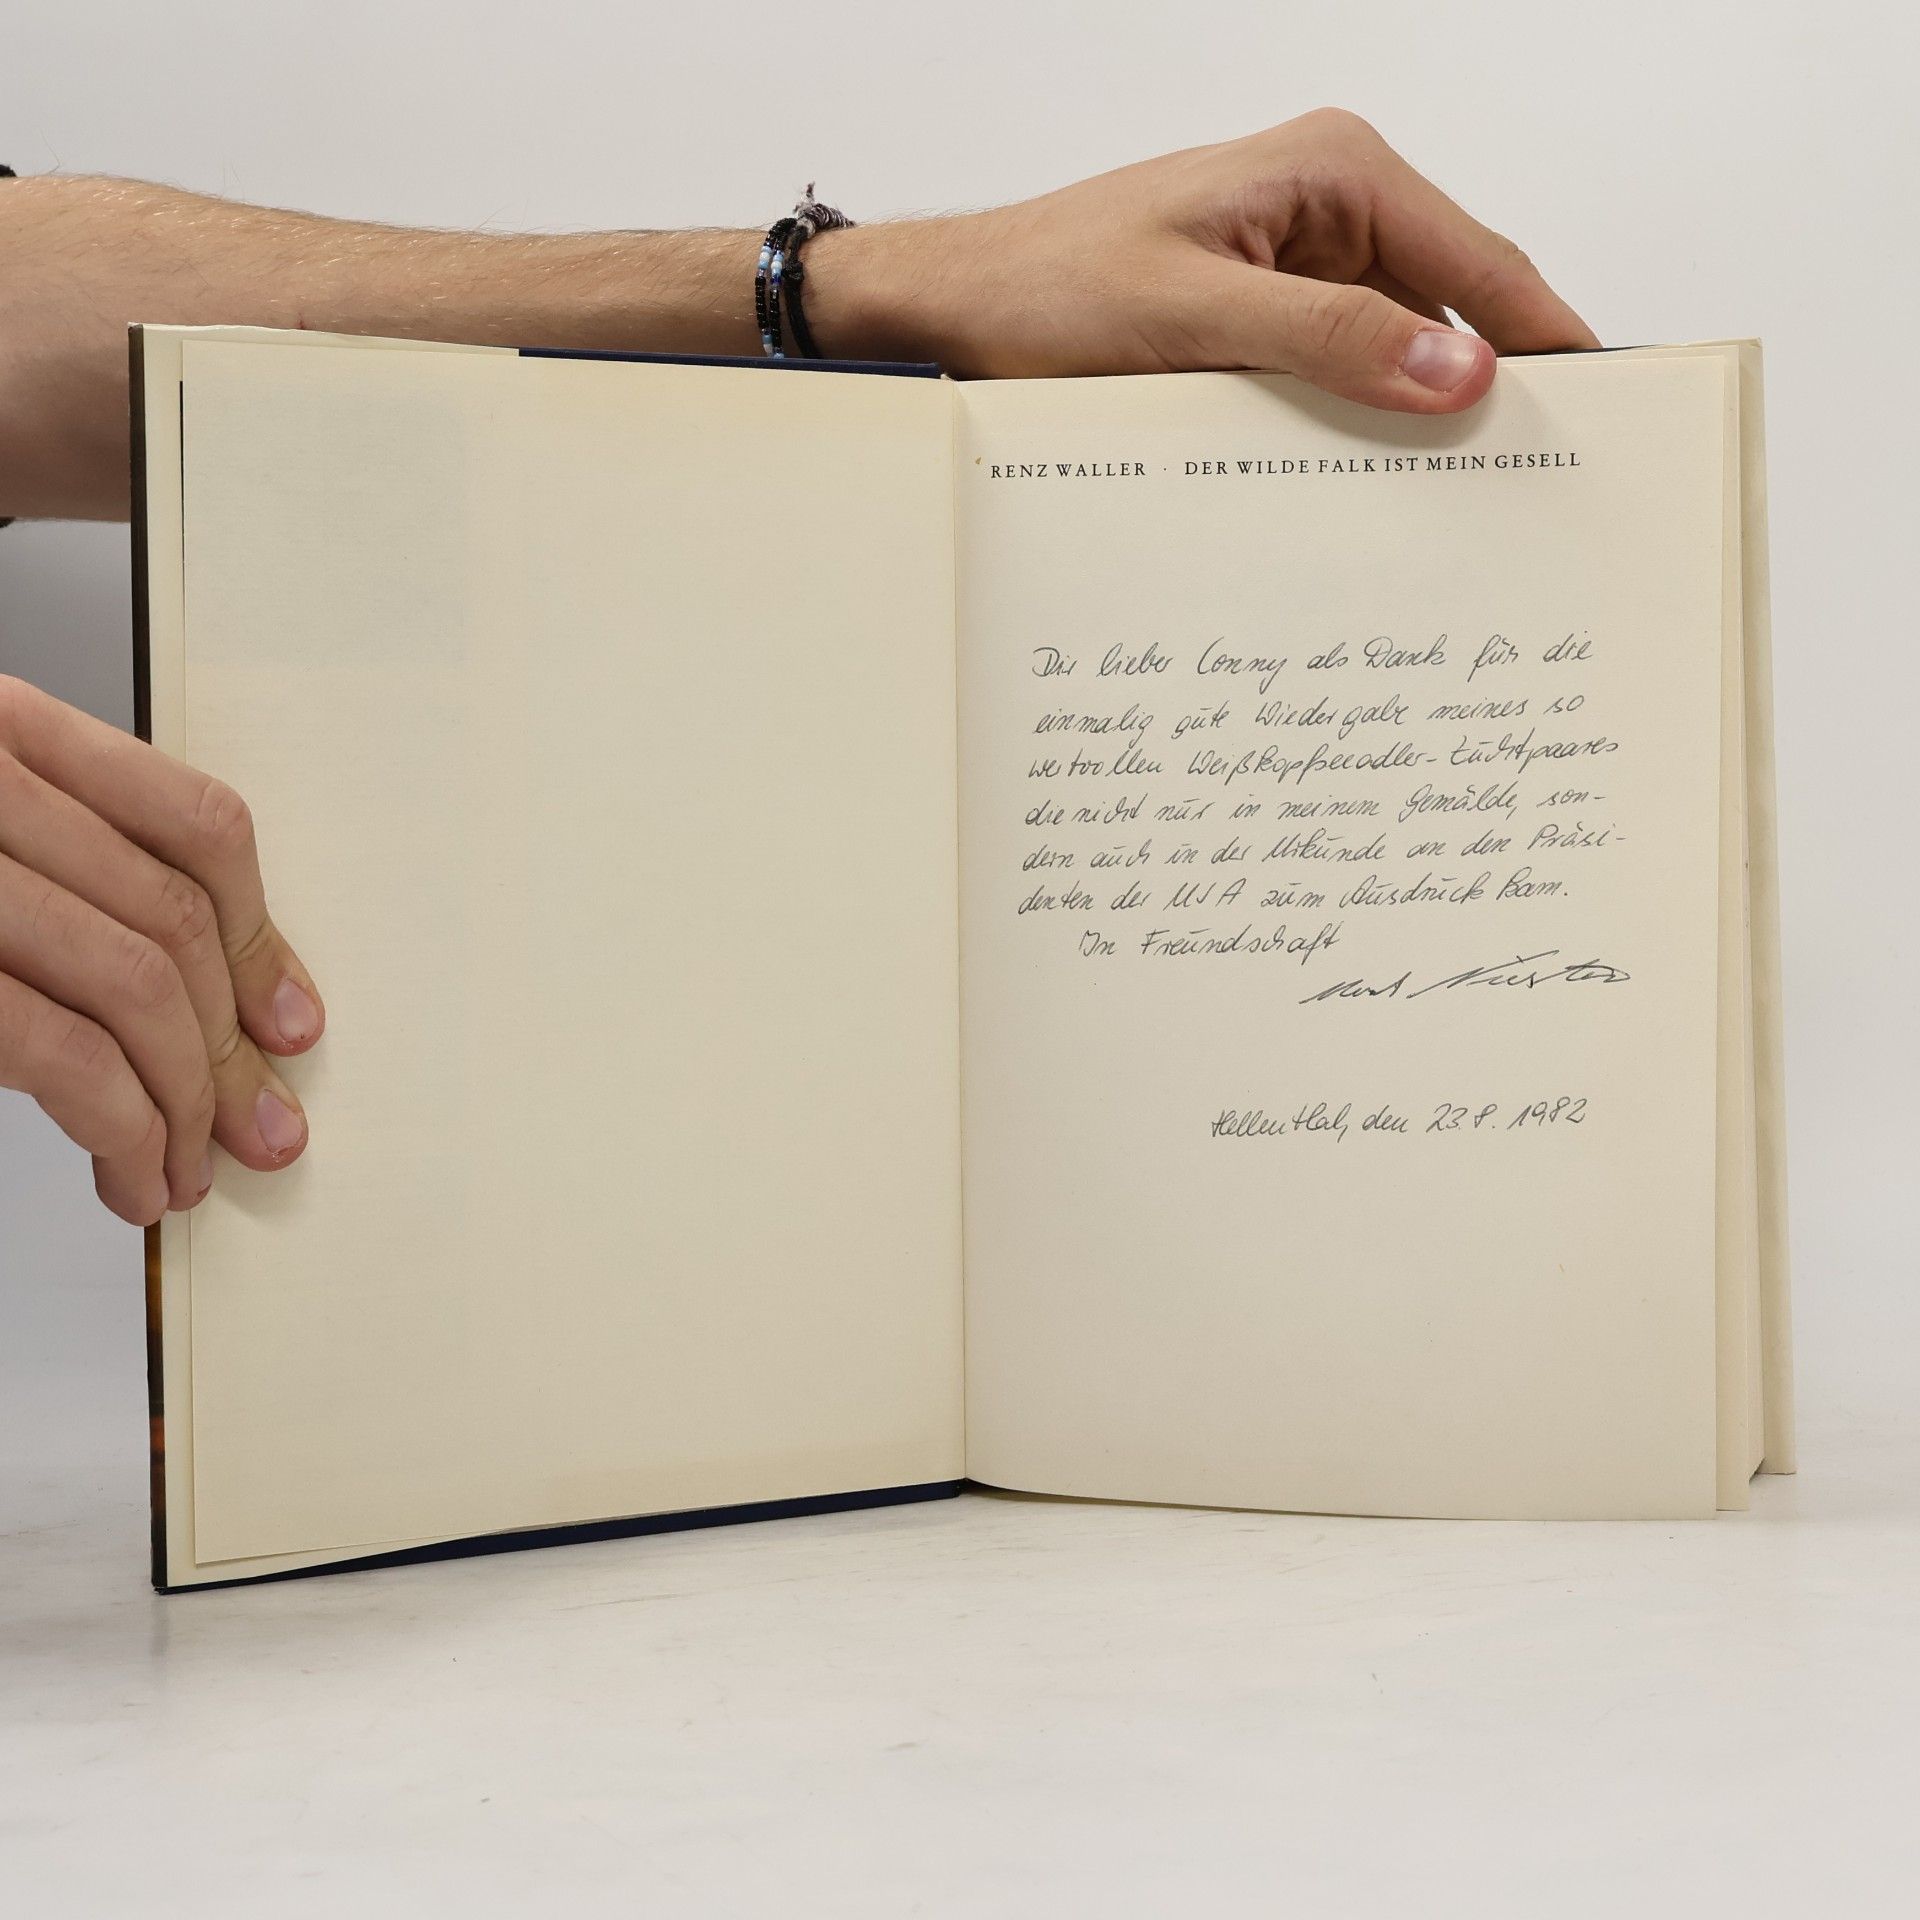 RENZ WALLER · DER WILDE FALK IST MEIN GESELL
Dir lieber Conny als Dank für die
einmalig gute Wiedergabe meines so
wertvollen Weißkopfseeadler-Zuchtpaares
die nicht nur in meinem Gemälde, son-
dern auch in der Urkunde an den Präsi-
denten der USA zum Ausdruck kam.
In Freundschaft
Horst Niesters
Hellenthal, den 23.8.1982